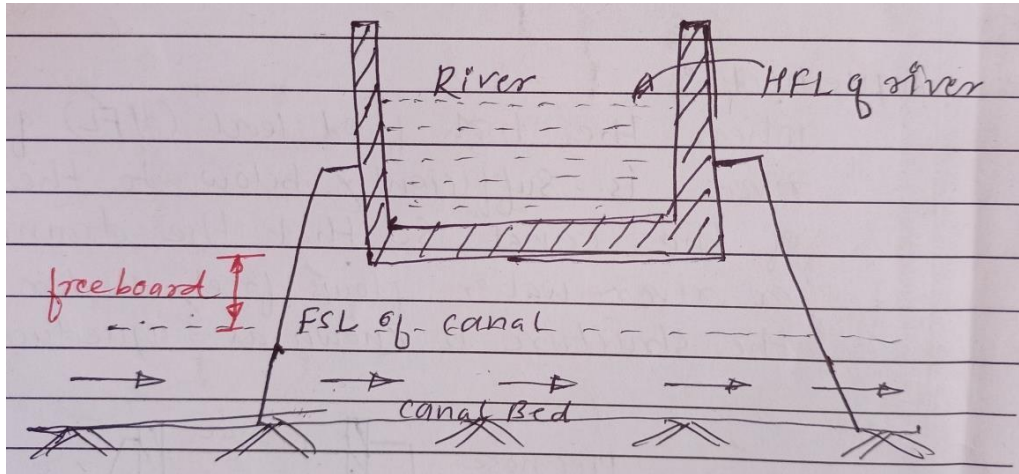 River
HFL of river
freeboard
FSL of canal
Canal Bed